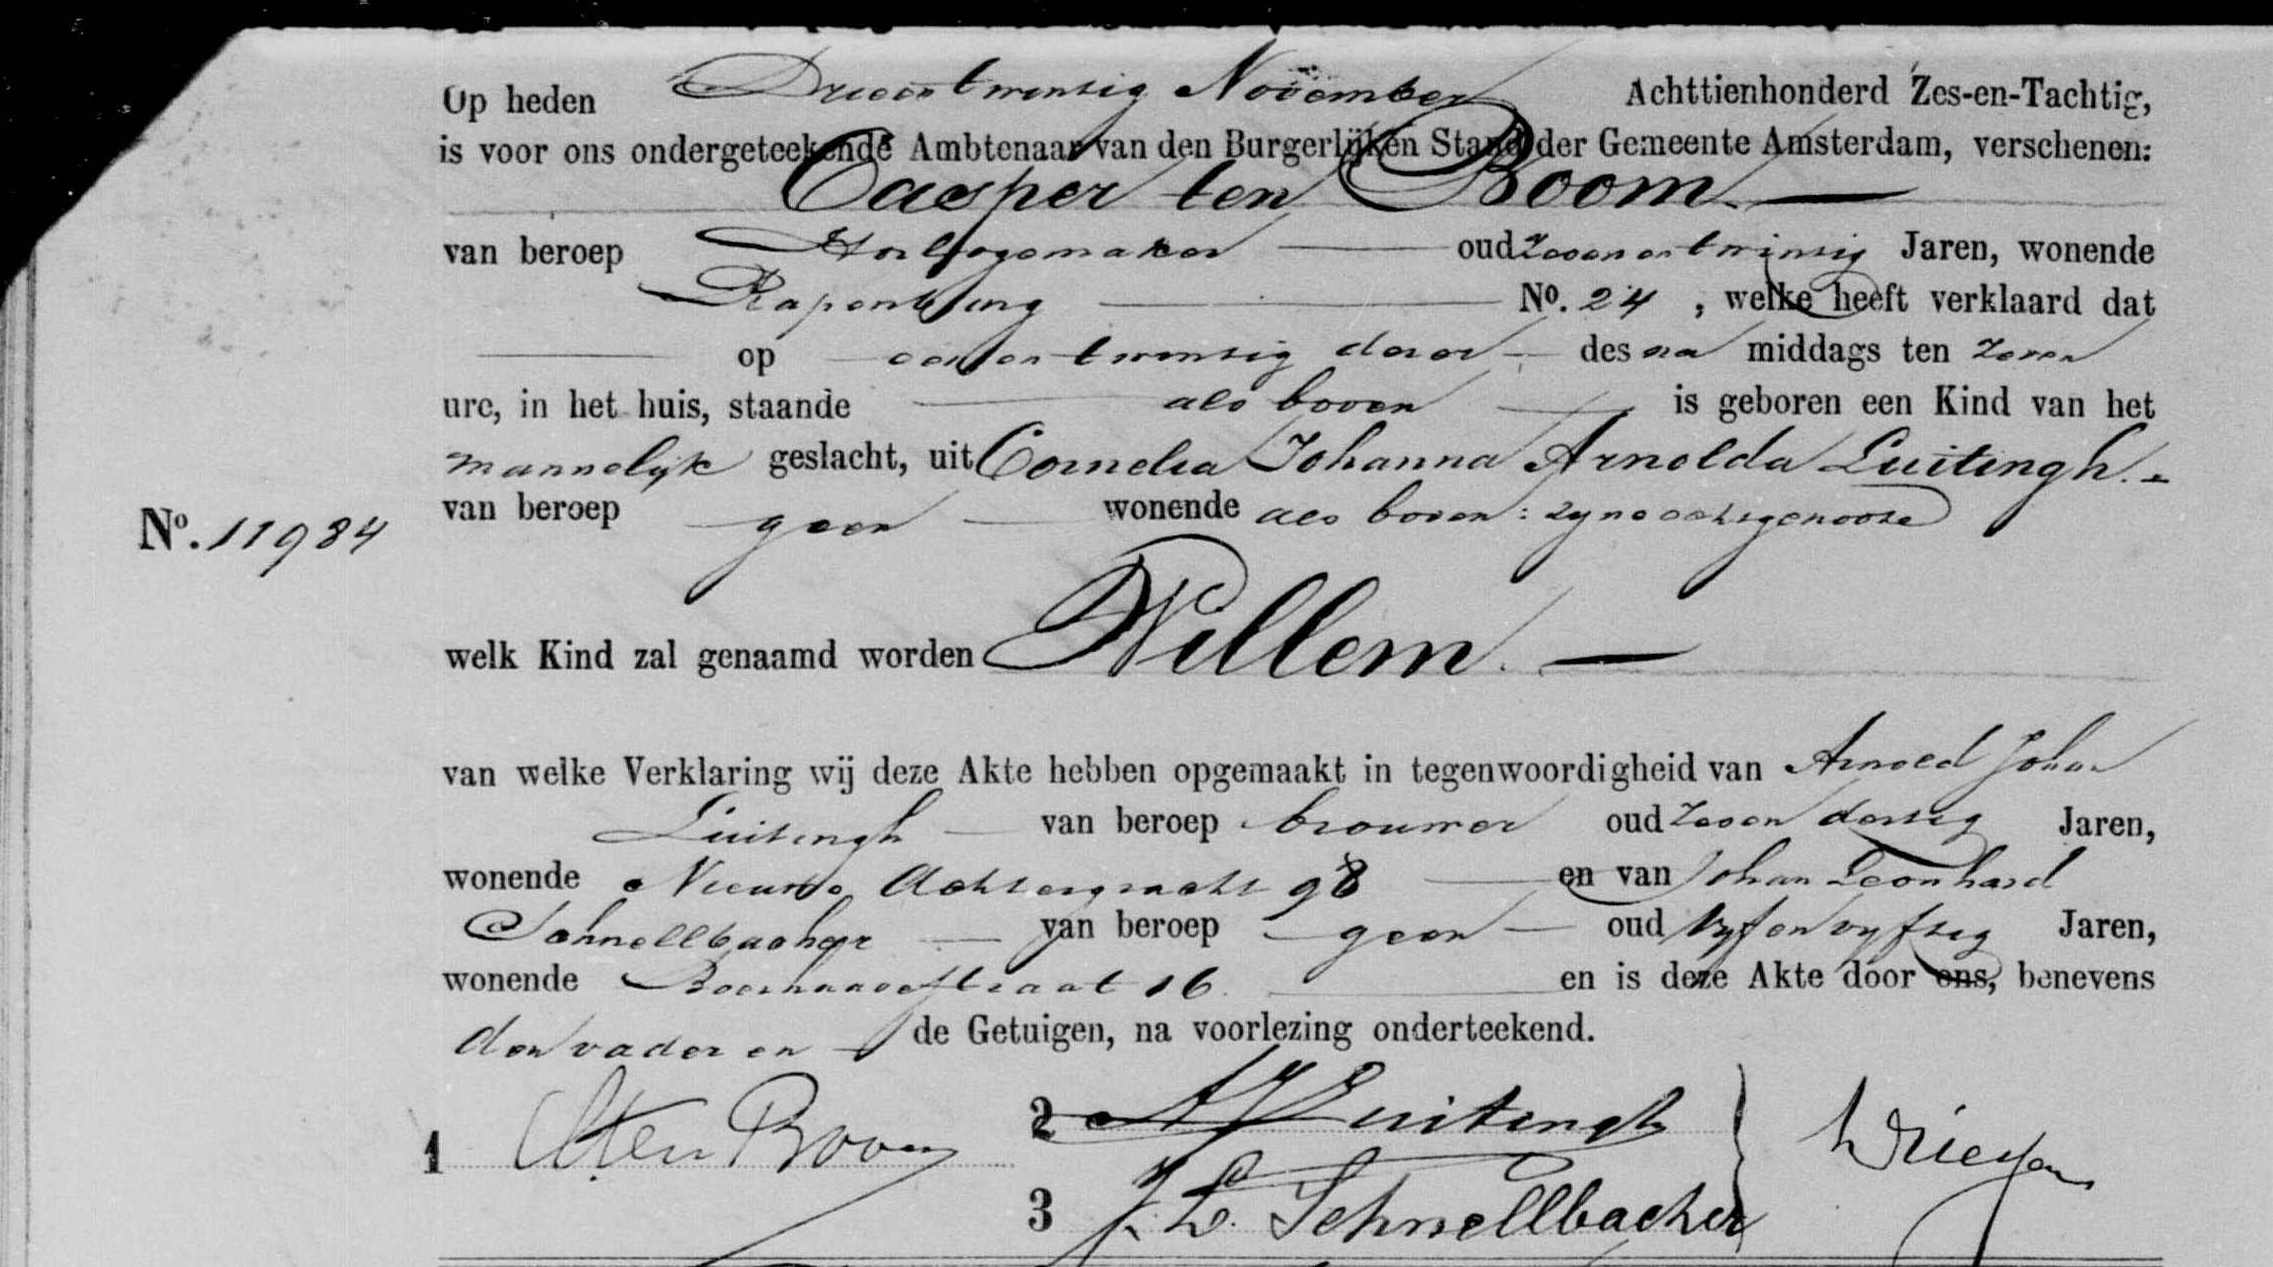 Op heden Drieentwintig November Achttienhonderd Zes-en-Tachtig,
is voor ons ondergeteekende Ambtenaar van den Burgerlijken Stand der Gemeente Amsterdam, verschenen:
Casper ten Boom
van beroep Horlogemaker oud Zevenentwintig Jaren, wonende
Rapenburg No. 24, welke heeft verklaard dat
op eenentwintig dezer des na middags ten zeven
ure, in het huis, staande als boven is geboren een Kind van het
mannelijk geslacht, uit Cornelia Johanna Arnolda Luitingh.
No. 11984 van beroep geen wonende als boven: zyne echtgenoote
welk Kind zal genaamd worden Willem.
van welke Verklaring wij deze Akte hebben opgemaakt in tegenwoordigheid van Arnold Johan
Luitingh van beroep brouwer oud zeven dertig Jaren,
wonende Nieuwe Achtergracht 98 en van Johan Leonhard
Schnellbacher van beroep geen oud vyfenvyftig Jaren,
wonende Boerhaavestraat 16 en is deze Akte door ons, benevens
den vader en de Getuigen, na voorlezing onderteekend.
1 C ten Boom 2 A J Luitingh
3 J. L. Schnellbacher